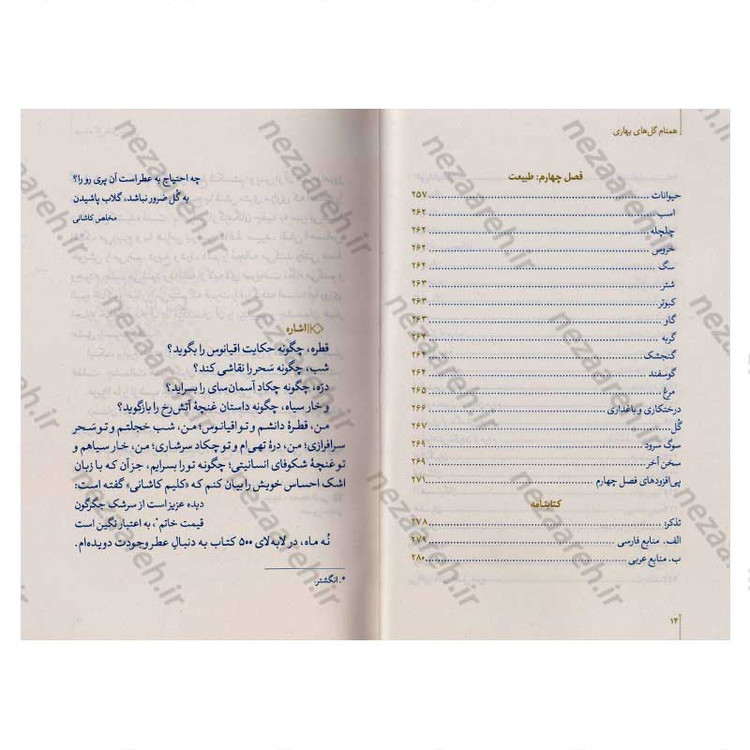 همنام گل‌های بهاری
فصل چهارم: طبیعت
حیوانات ........ ۲۵۷
اسب ........ ۲۶۲
چلچله ........ ۲۶۲
خروس ........ ۲۶۲
سگ ........ ۲۶۲
شتر ........ ۲۶۳
کبوتر ........ ۲۶۳
گاو ........ ۲۶۳
گربه ........
گنجشک ........ ۲۶۴
گوسفند ........ ۲۶۴
مرغ ........ ۲۶۵
درختکاری و باغداری ........ ۲۶۶
گُل ........ ۲۶۷
سوگ سرود ........ ۲۶۹
سخن آخر ........ ۲۶۹
پی‌افزودهای فصل چهارم ........ ۲۷۱
کتابنامه
تذکر: ........ ۲۷۸
الف. منابع فارسی ........ ۲۷۹
ب. منابع عربی ........ ۲۸۰
۱۴
چه احتیاج به عطر است آن پری رو را؟
به گُل ضرور نباشد، گلاب پاشیدن
مخلص کاشانی
اشاره
قطره، چگونه حکایت اقیانوس را بگوید؟
شب، چگونه سَحر را نقاشی کند؟
درّه، چگونه چکاد آسمان‌سای را بسراید؟
و خار سیاه، چگونه داستان غنچهٔ آتش‌رخ را بازگوید؟
من، قطرهٔ دانشم و تو اقیانوس؛ من، شب خجلتم و تو سَحر
سرافرازی؛ من، درهٔ تهی‌ام و تو چکاد سرشاری؛ من، خار سیاهم و
تو غنچهٔ شکوفای انسانیتی؛ چگونه تو را بسرایم، جز آن که با زبان
اشک احساس خویش را بیان کنم که «کلیم کاشانی» گفته است:
دیده عزیز است از سرشک جگرگون
قیمت خاتم*، به اعتبار نگین است
نُه ماه، در لابه‌لای ۵۰۰ کتاب به دنبالِ عطر وجودت دویده‌ام.
*. انگشتر.
nezaareh.ir